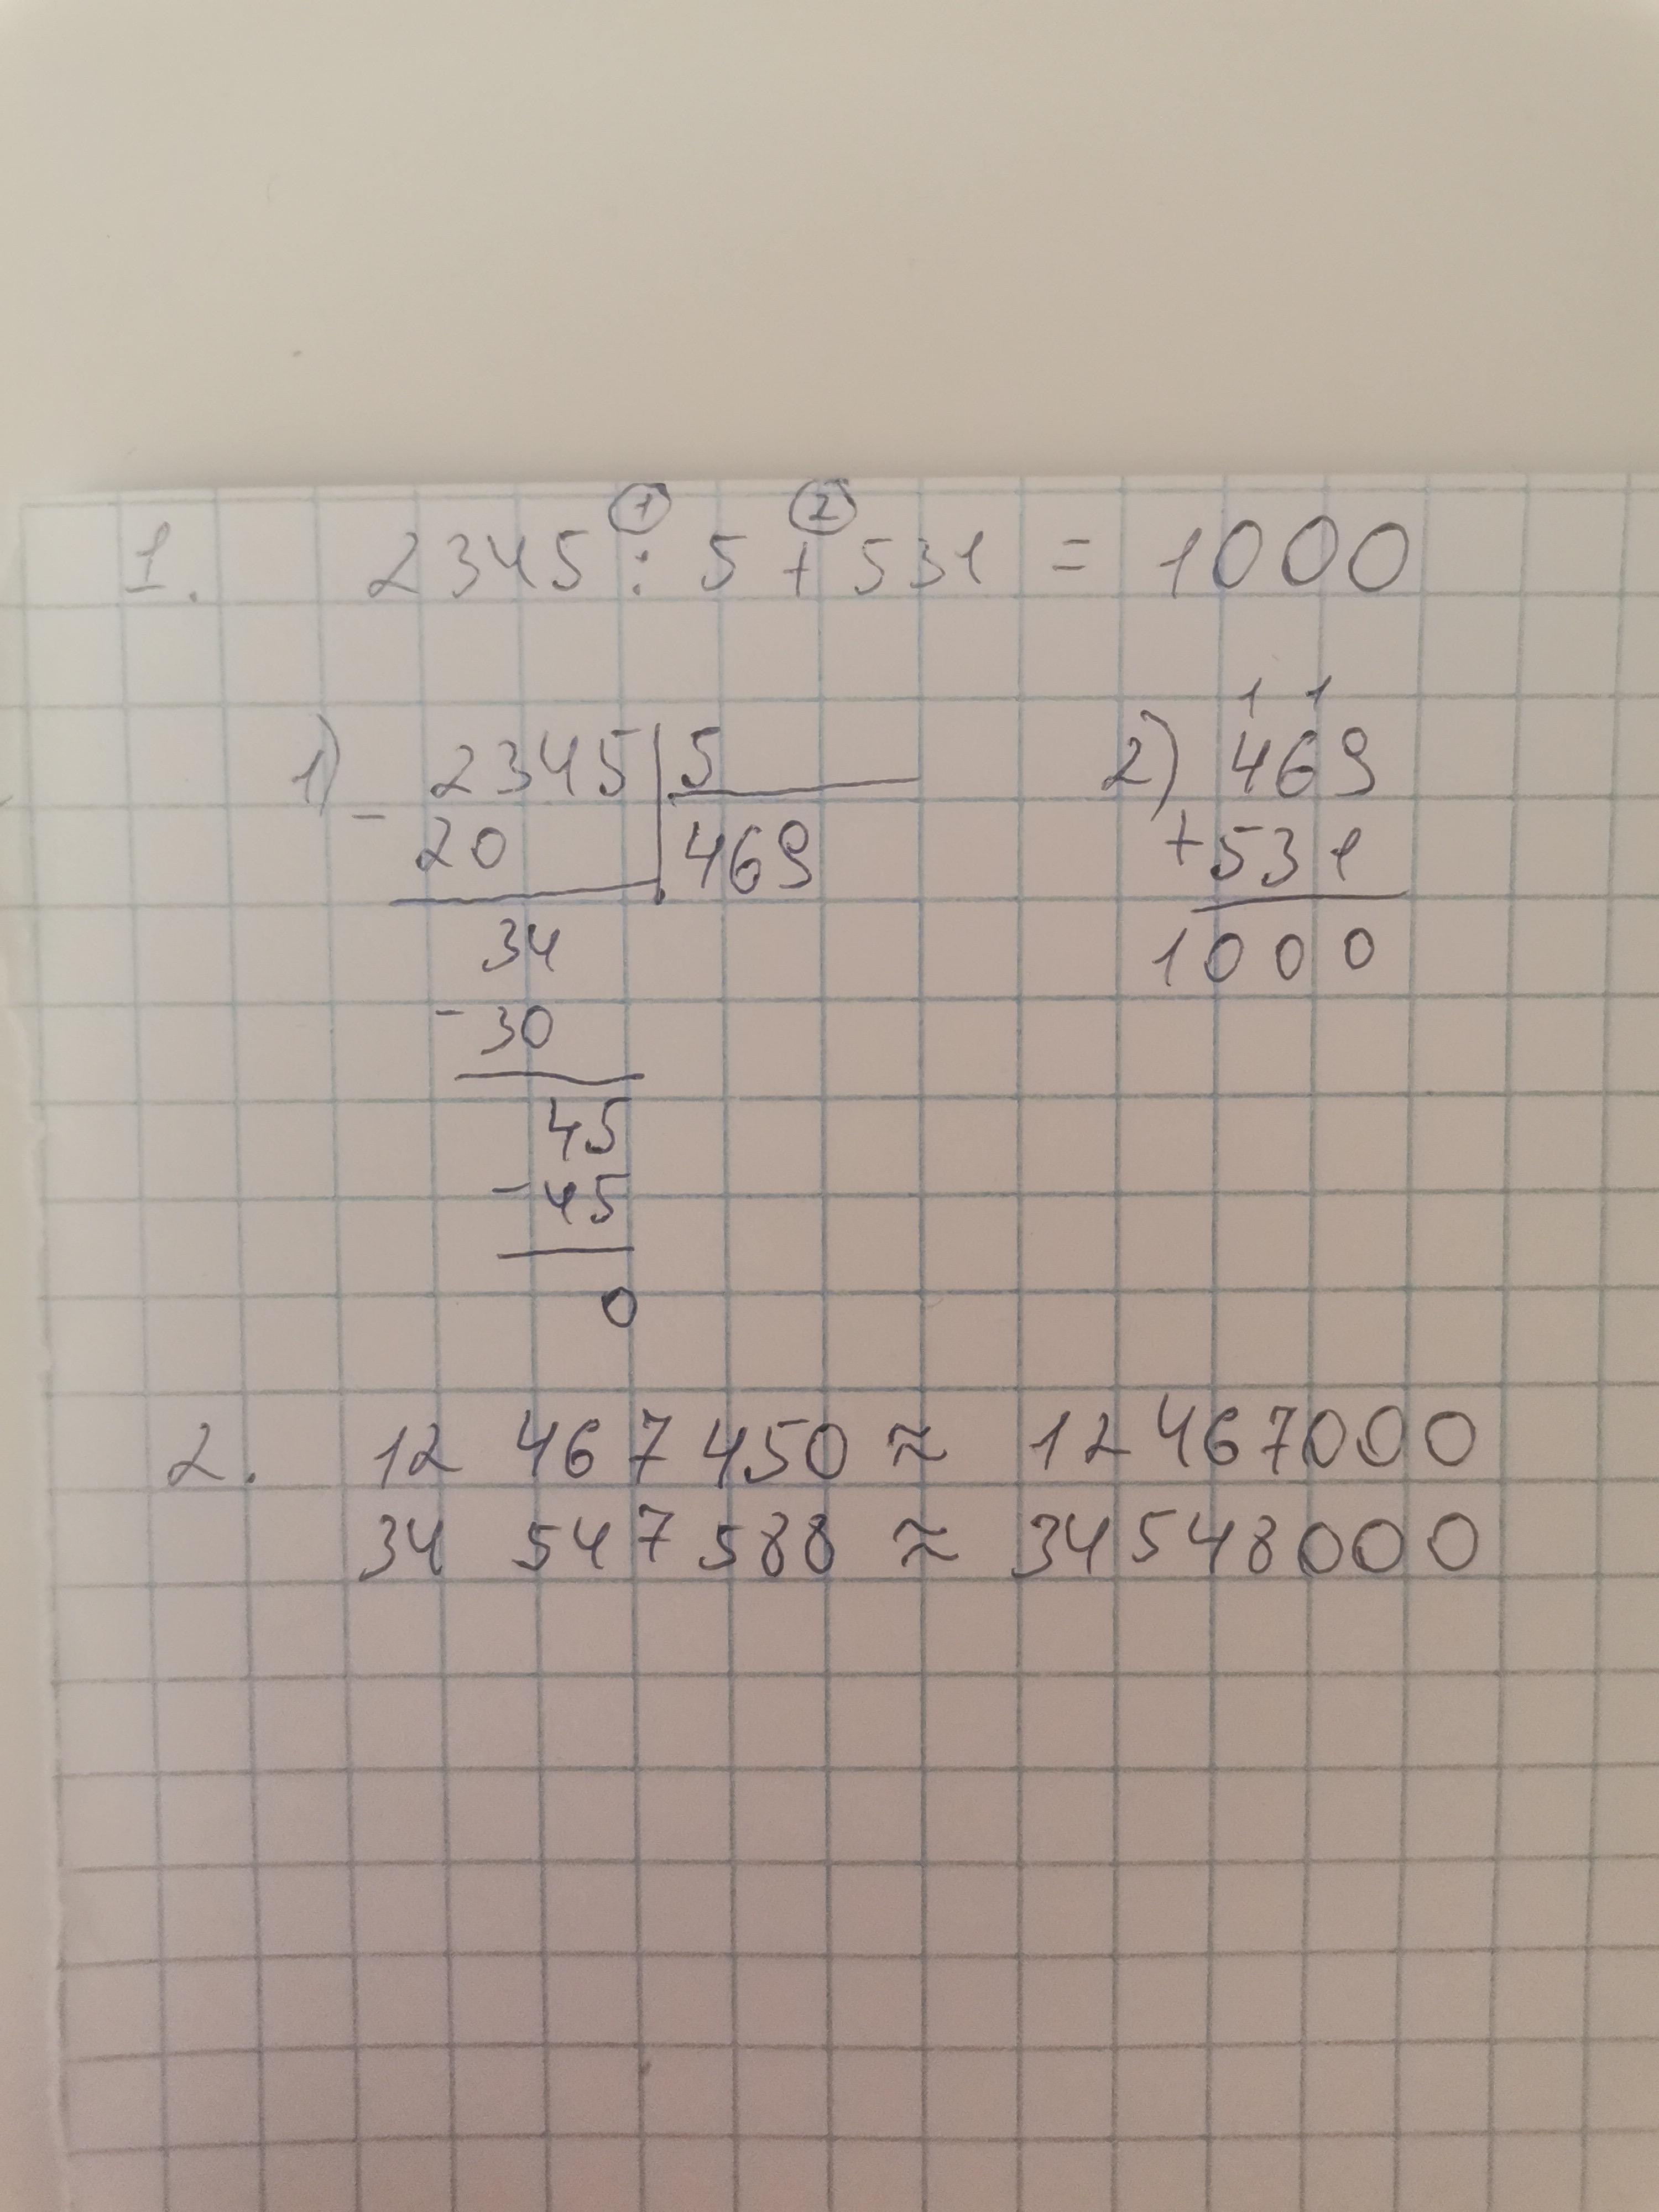 1. 2345 : 5 + 531 = 1000
① ②
1) 2345 | 5
- 20 | 469
34
- 30
45
- 45
0
1 1
2) 469
+ 531
1000
2. 12 467 450 ≈ 12 467 000
34 547 588 ≈ 34 548 000